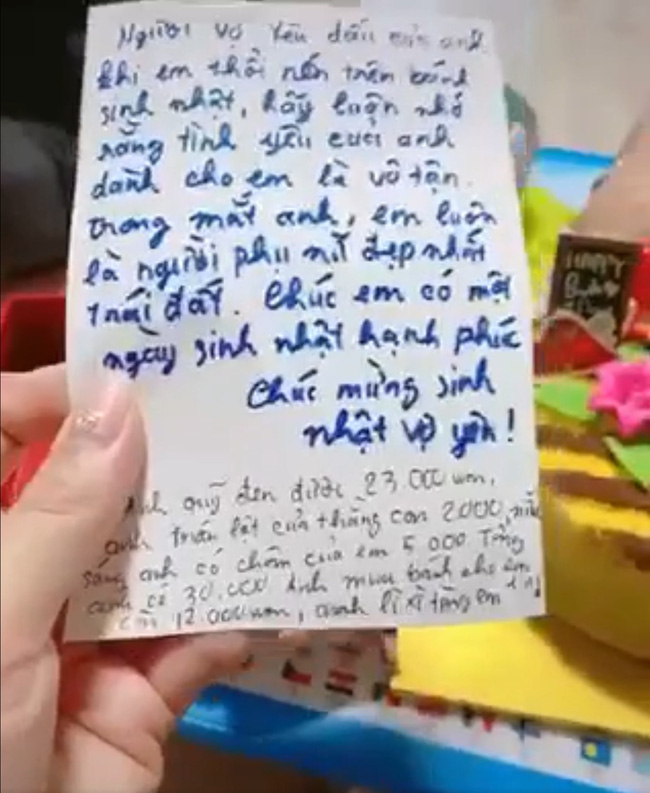 Người vợ yêu dấu của anh
khi em thổi nến trên bánh
sinh nhật, hãy luôn nhớ
rằng tình yêu của anh
dành cho em là vô tận.
trong mắt anh, em luôn
là người phụ nữ đẹp nhất
trái đất. Chúc em có một
ngày sinh nhật hạnh phúc
Chúc mừng sinh
nhật vợ yêu!
Anh quỹ đen được 23.000 won,
anh trấn lột của thằng con 2000, nãy
sáng anh có chôm của em 5 000 Tổng
anh có 30.000 Anh mua bánh cho em
còn 12.000 won, anh lì xì tặng em
HAPPY